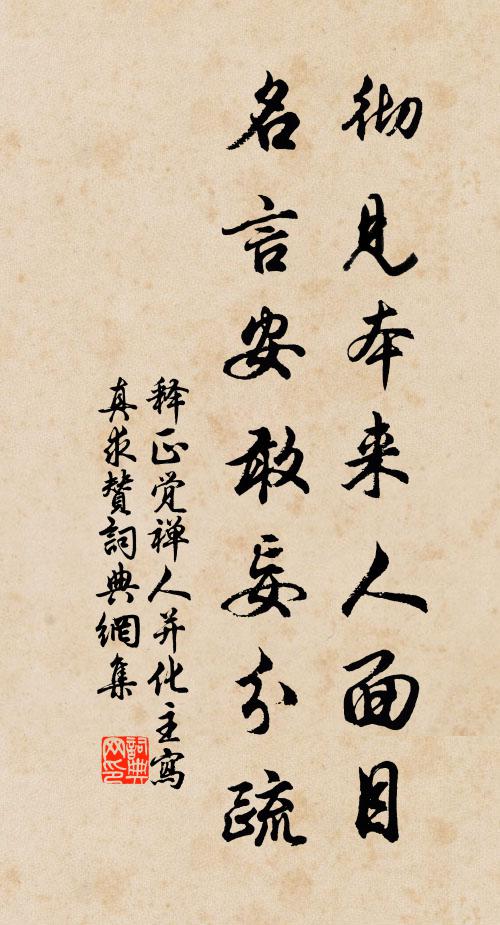 彻见本来人面目
名言安敢妄分疏
释正觉禅人并化主寫
真求贊詞典網集
詞典网印